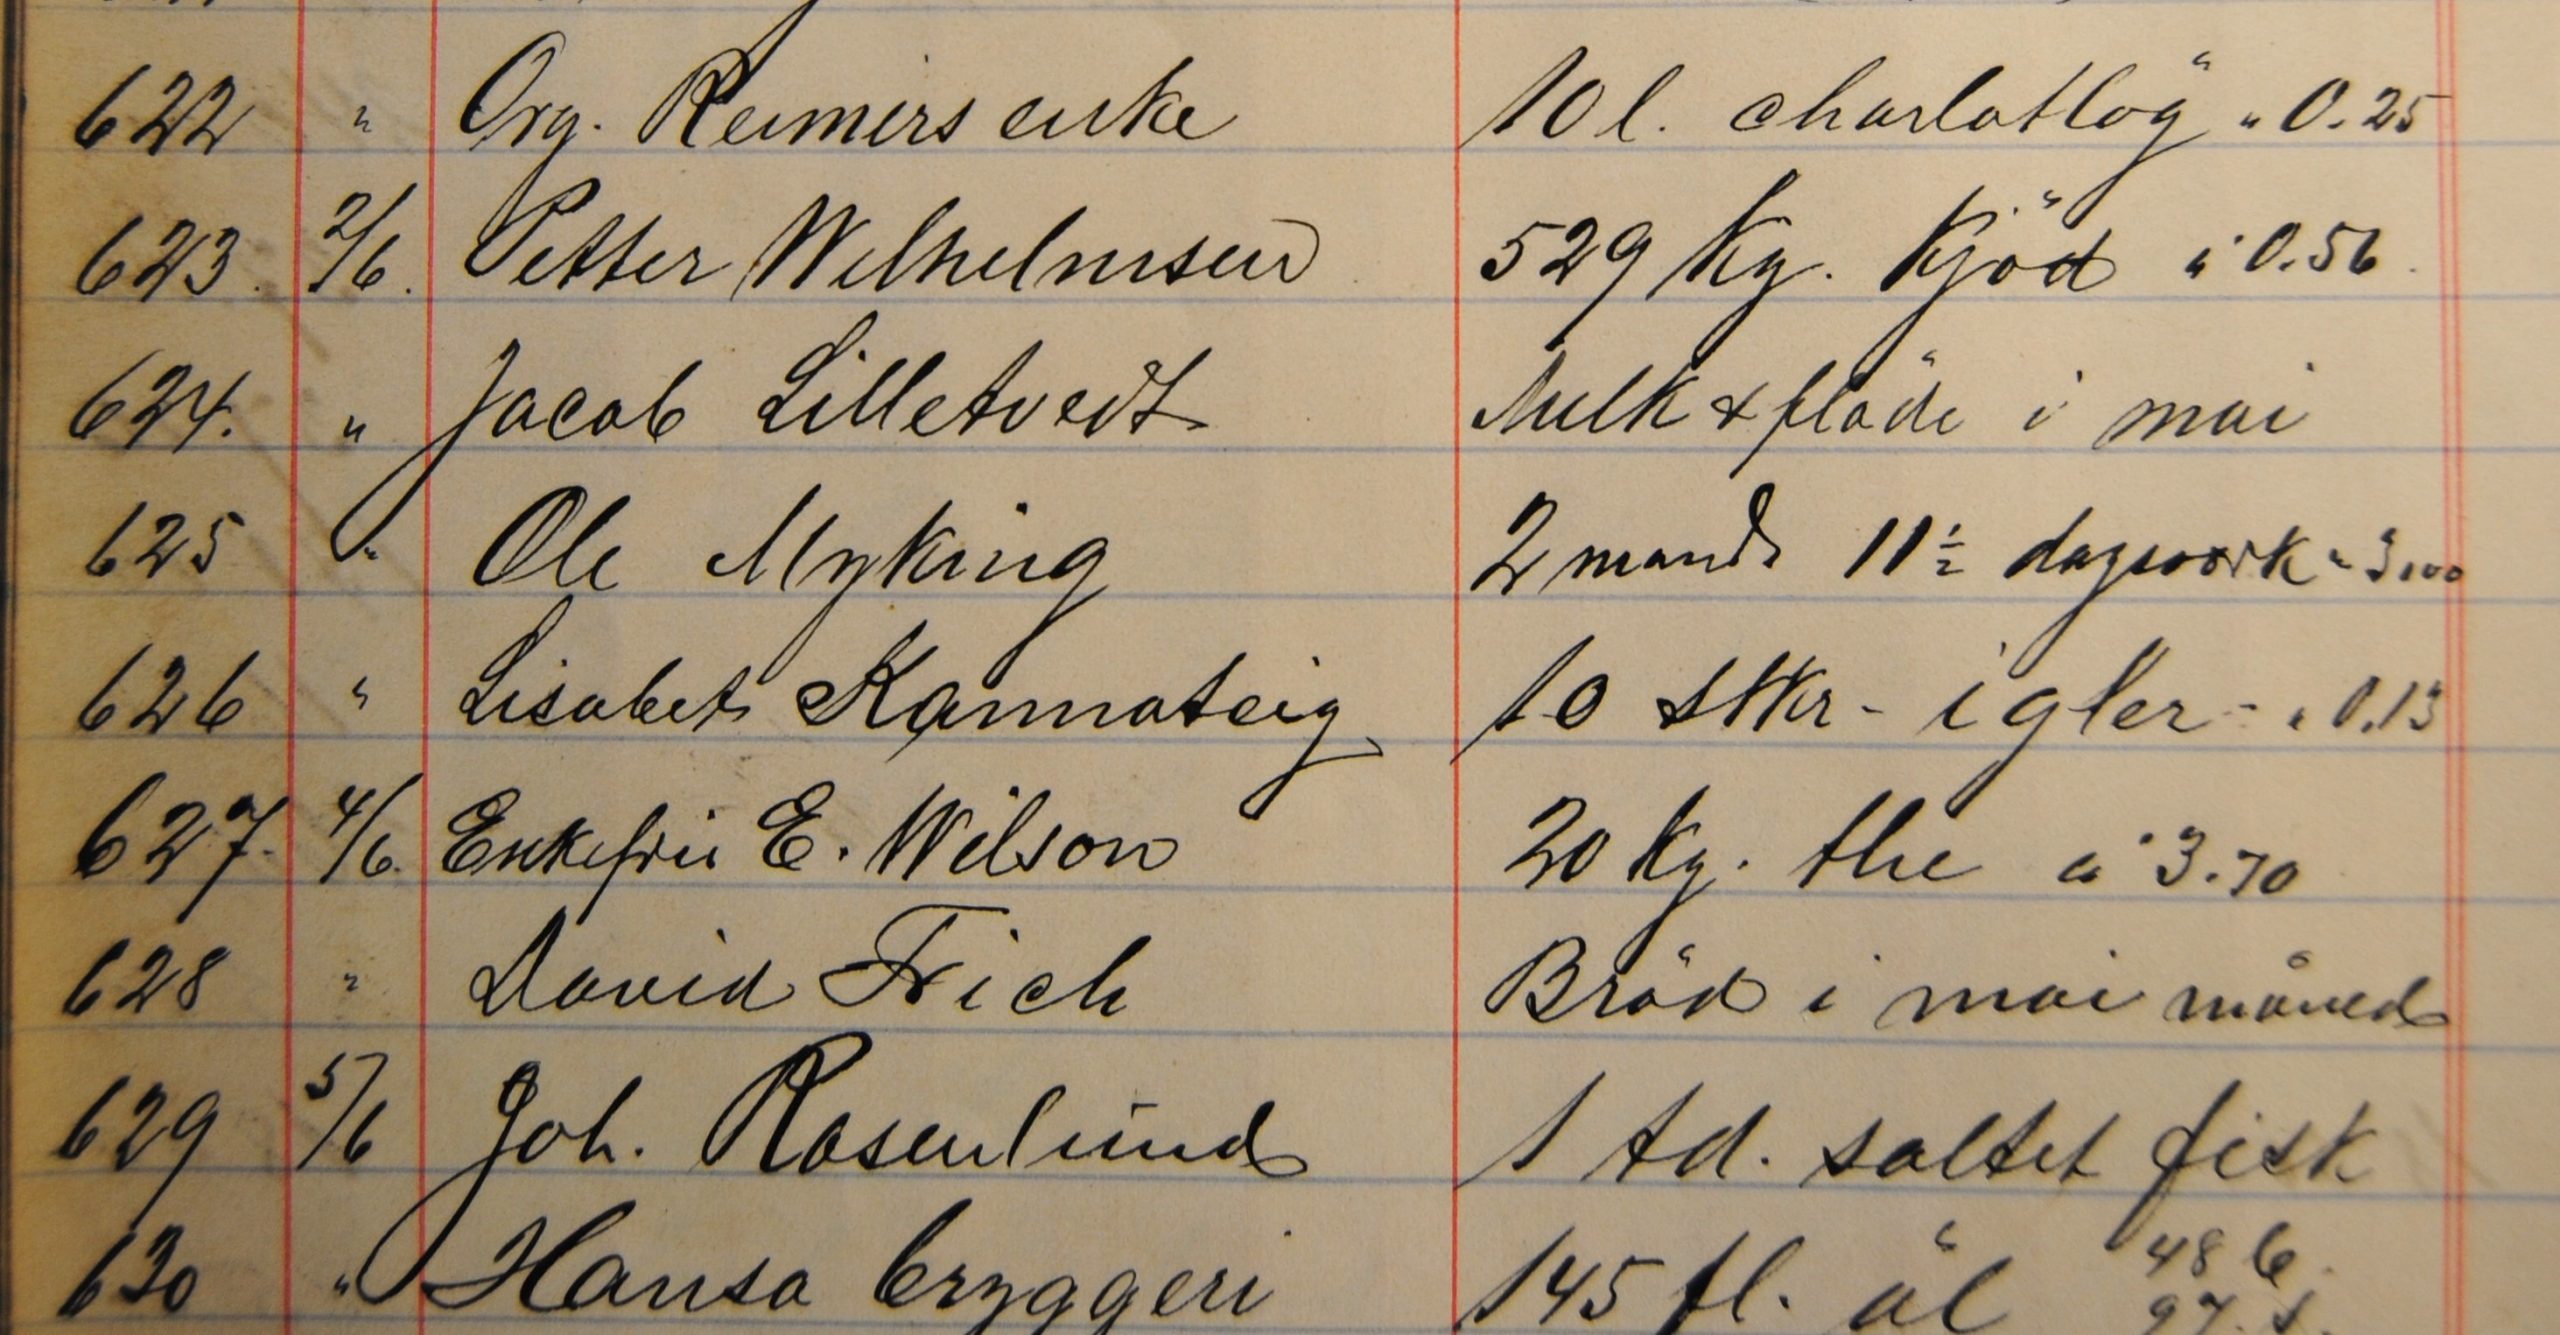 622 " Org. Reimers enke 10 l. charlotlög " 0.25
623. 2/6. Petter Wilhelmsen 529 Kg. Kjöd á 0.56.
624. " Jacob Lilletvedt Melk & flöde i mai
625 " Ole Myking 2 mands 11½ dagsverk " 3.00
626 " Lisabet Kannateig 10 stkr - igler - " 0.13
627. 4/6. Enkefru E. Wilson 20 Kg. the á 3.70
628 " David Frich Bröd i mai måned
629 5/6 Joh. Rosenlund 1 td. saltet fisk
630 " Hansa bryggeri 145 fl. öl 48 b.